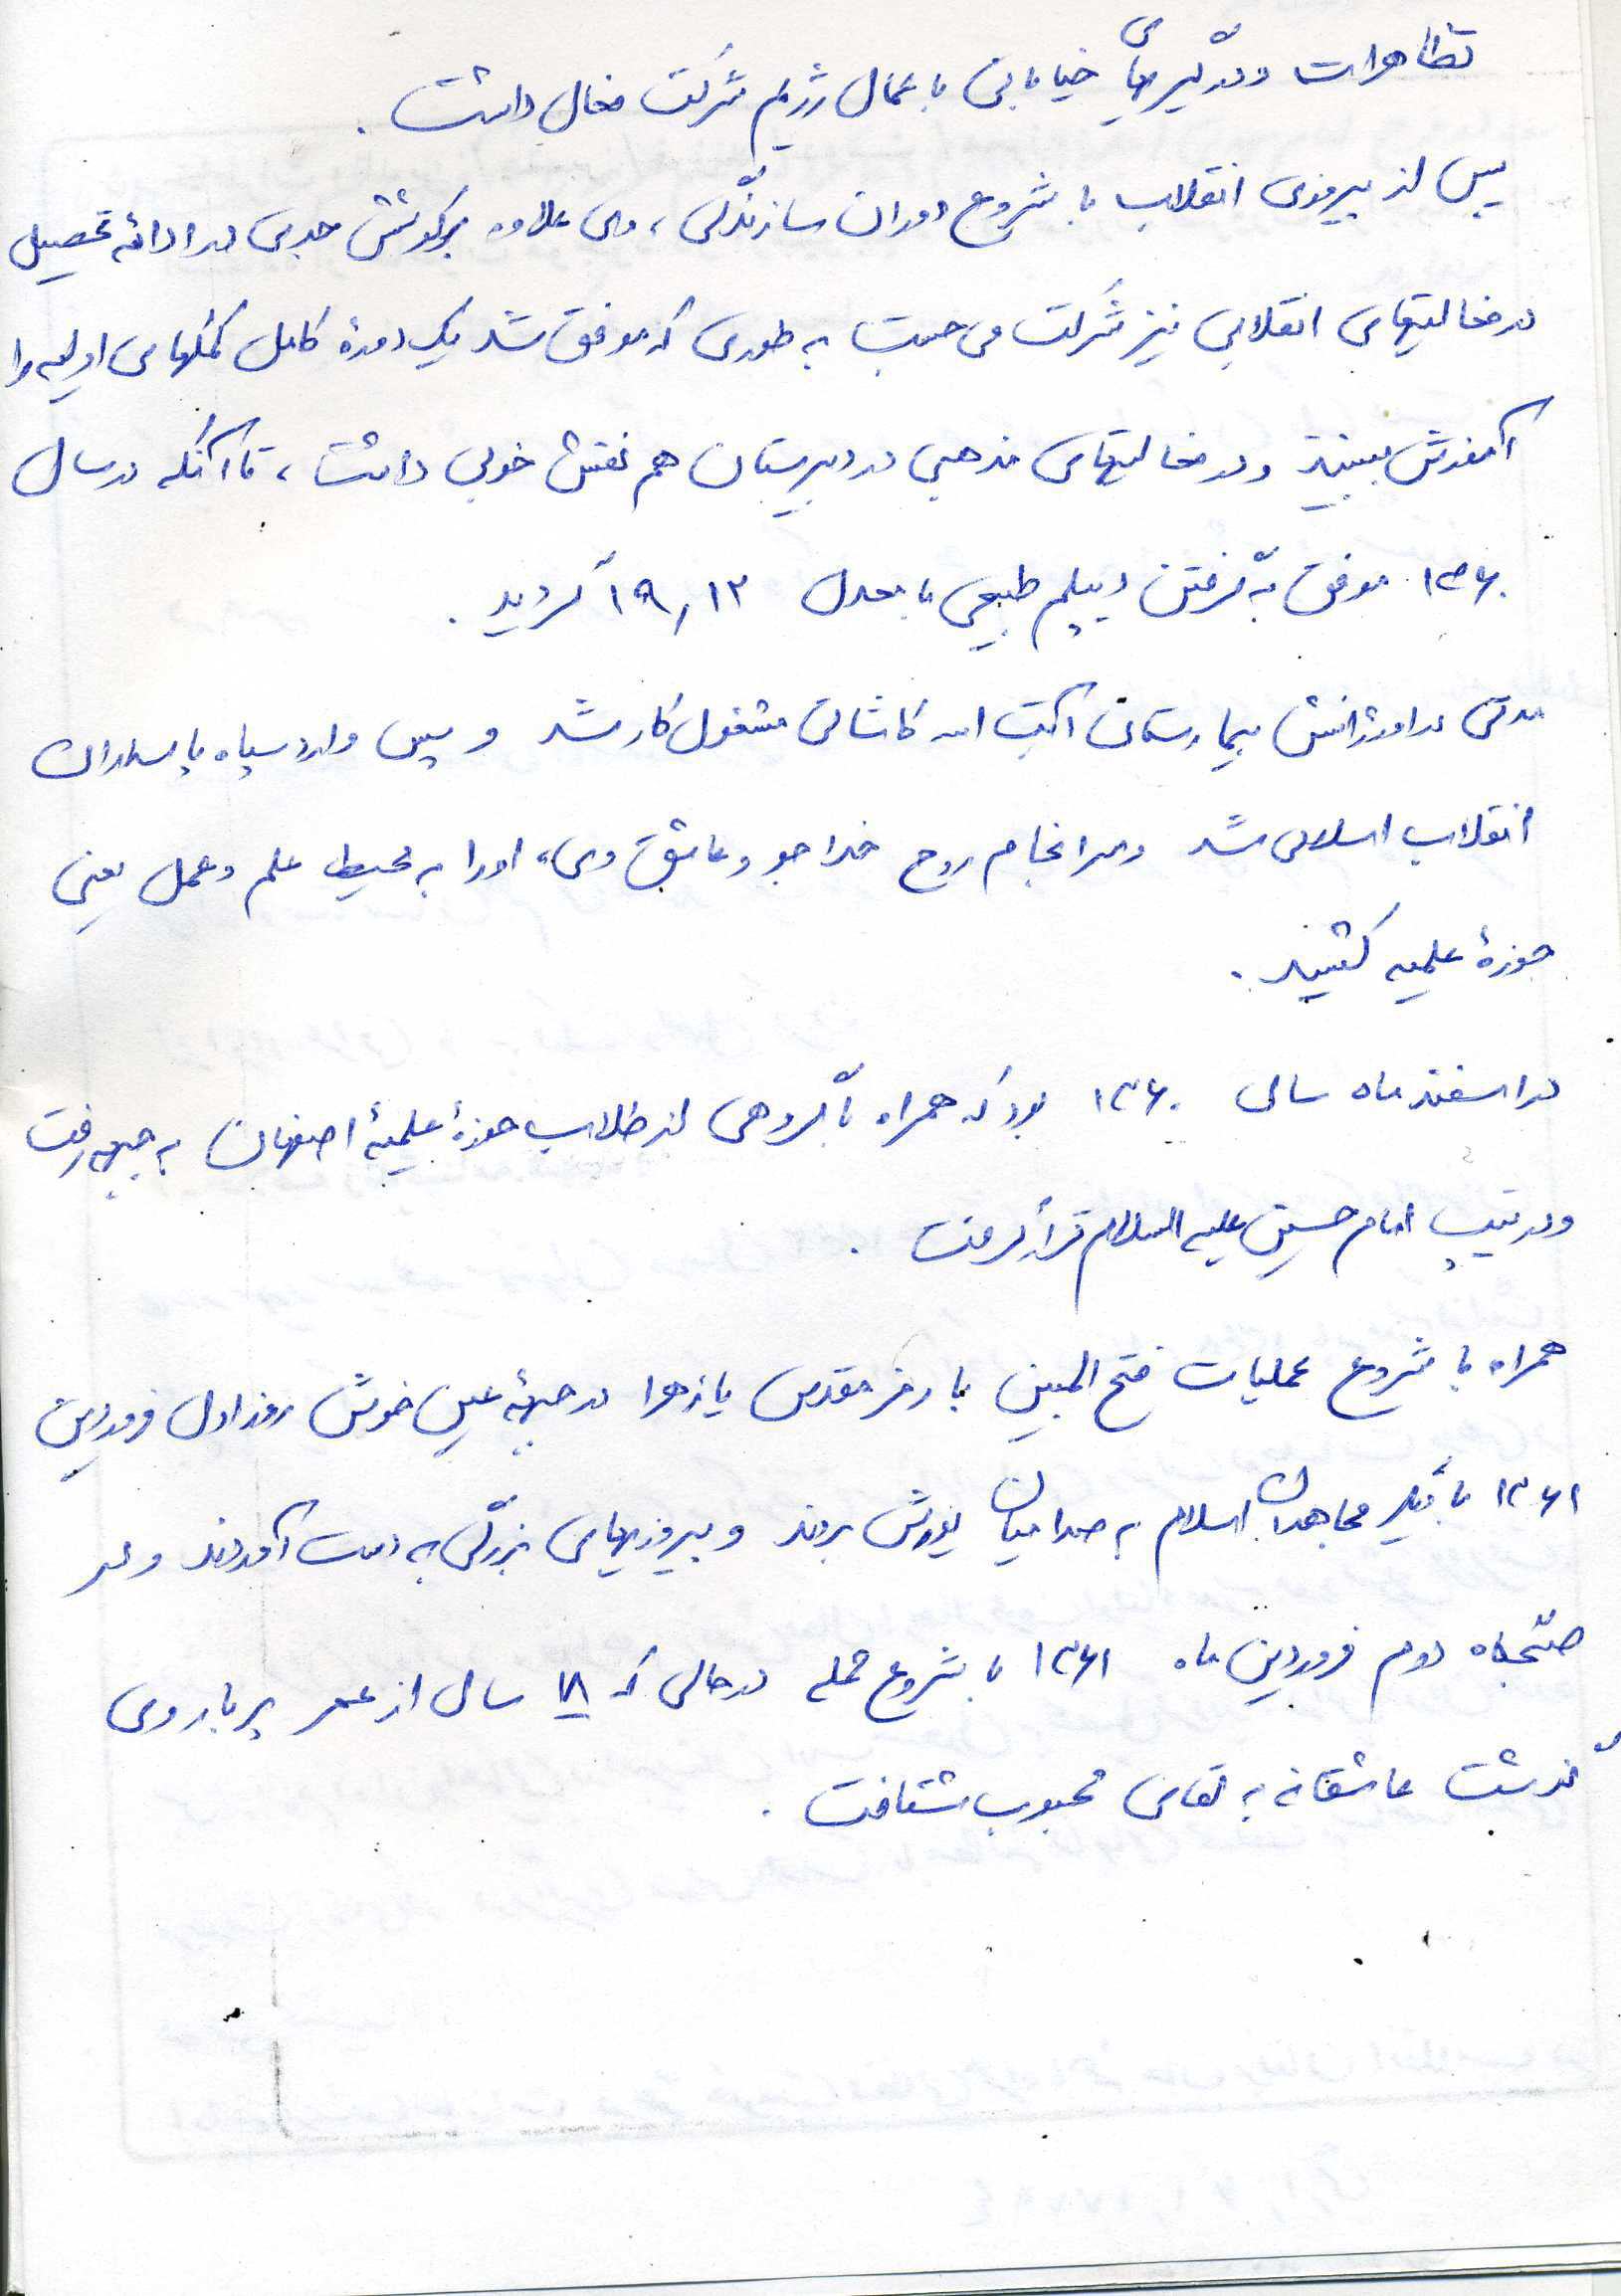 تظاهرات و درگیریهای خیابانی با عمال رژیم شرکت فعال داشت .
پس از پیروزی انقلاب با شروع دوران سازندگی ، وی علاوه بر کوشش جدی در ادامهٔ تحصیل
در فعالیتهای انقلابی نیز شرکت می جست به طوری که موفق شد یک دورهٔ کامل کمکهای اولیه را
آموزش ببیند و در فعالیتهای مذهبی در دبیرستان هم نقش خوبی داشت ، تا آنکه در سال
۱۳۶۰ موفق به گرفتن دیپلم طبیعی با معدل ۱۹٫۱۲ گردید .
مدتی در اورژانس بیمارستان آیت اله کاشانی مشغول کار شد و سپس وارد سپاه پاسداران
انقلاب اسلامی شد و سرانجام روح خداجو و عاشق وی ، او را به محیط علم و عمل یعنی
حوزهٔ علمیه کشانید .
در اسفند ماه سال ۱۳۶۰ بود که همراه با گروهی از طلاب حوزهٔ علمیهٔ اصفهان به جبهه رفت
و در تیپ امام حسین علیه السلام قرار گرفت .
همراه با شروع عملیات فتح المبین با رمز مقدس یا زهرا در جبههٔ عین خوش روز اول فروردین
۱۳۶۱ با دیگر مجاهدان اسلام به صدامیان یورش بردند و پیروزیهای بزرگی به دست آوردند و در
صبحگاه دوم فروردین ماه ۱۳۶۱ با شروع حمله در حالی که ۱۸ سال از عمر پربار وی
گذشت عاشقانه به لقای محبوب شتافت .